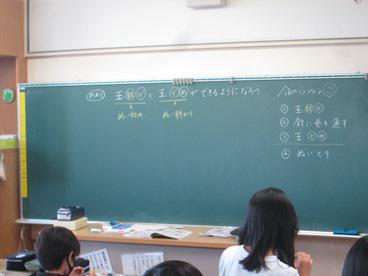 めあて 玉結びと玉どめができるようになろう
ぬい始め ぬい終わり
今日のミッション
① 玉結び
② 針に糸を通す
③ 玉どめ
④ ぬいとり